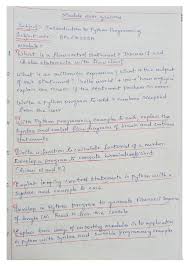 Module wise questions
Subject: Introduction to Python Programming
Subject code:
Module 1
1) What is a flow control statement? Discuss if and
else statements with flow chart
2) What is an arithmetic expression? What is the output
of each statement? 'hello world' + 100 + how explain
explain the reason if the statement produces an error
Write a python program to add n numbers accepted
from the user
With Python programming example to each, explain the
syntax and control flow diagrams of break and continue
statements
Write a function to calculate factorial of a number.
Develop a program to compute binomial coefficient
(Given N and R)
Explain looping control statements in Python with a
syntax and example to each
Develop a Python program to generate Fibonacci sequence
of length (N). Read N from the console
Explain two ways of importing modules in to application
in Python with syntax and suitable programming example